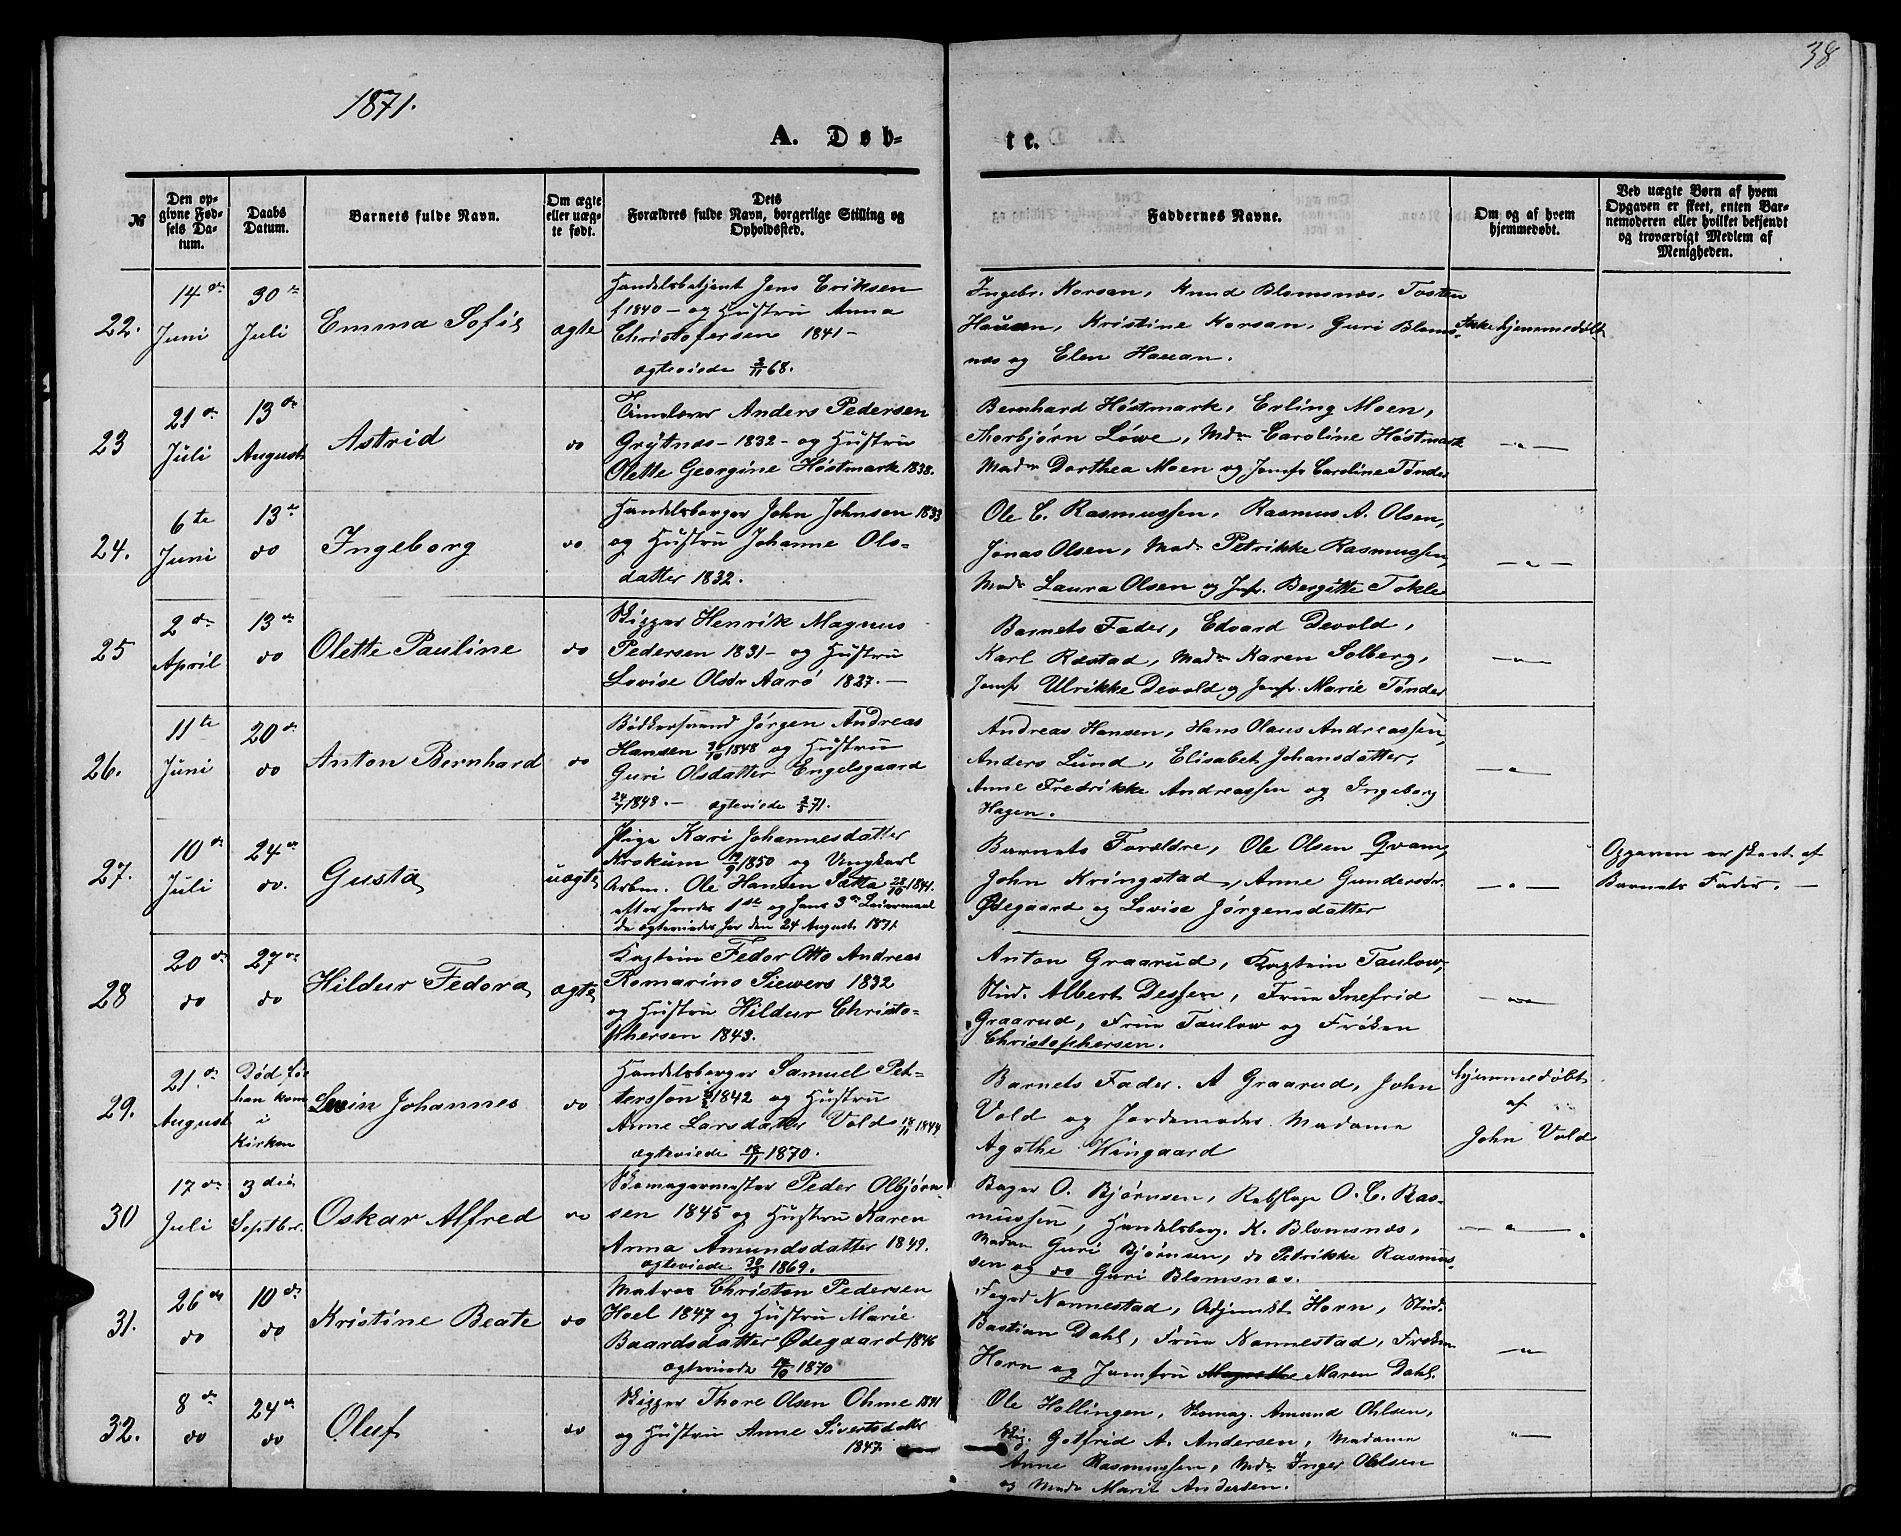 38
1871.
A. Døb-
te.
№
Den op-
givne Fød-
sels Da-
tum.
Daabs
Datum.
Barnets fulde Navn.
Om ægte
eller uæg-
te født.
Dets
Forældres fulde Navn, borgerlige Stilling og
Opholdssted.
Faddernes Navne.
Om og af hvem
hjemmedøbt.
Ved uægte Børn af hvem
Opgaven er skeet, enten Bar-
nemoderen eller hvilket bekjendt
og troværdigt Medlem af
Menigheden.
22.
14de
Juni
30te
Juli
Emma Sofie
ægte
Handelsbetjent Jens Eriksen
f 1840 – og Hustru Anna
Christofersen 1841 –
ægteviede 3/11 68.
Ingebr. Korsan, Knud Blomsnæs, Tosten
Hauan, Kristine Korsan, Guri Bloms-
næs og Elen Hauan.
Ikke hjemmedøbt
23
21de
Juli
13de
August
Astrid
do
Timelærer Anders Pedersen
Grytnæs – 1832 – og Hustru
Olette Georgine Høstmark 1838.
Bernhard Høstmark, Erling Moen,
Thorbjørn Løwe, Mdm Caroline Høstmark
Madm Dorthea Moen og Jomfr Caroline Tønder
– " –
24.
6te
Juni
13de
do
Ingeborg
do
Handelsborger John Johnsen 1833
og Hustru Johanne Ols-
datter 1832.
Ole C. Rasmussen, Rasmus A. Olsen,
Jonas Olsen, Mad. Petrikke Rasmussen,
Mad. Laura Olsen og Jmfr. Bergitte Tokle
– " –
25
2de
April
13de
do
Olette Pauline
do
Bigger Henrik Magnus
Pedersen 1831 – og Hustru
Lovise Olsdr Aarø 1827. –
Barnets Fader, Edvard Devold,
Karl Ræstad, Mad. Karen Solberg,
Jomfr Ulrikke Devold og Jomfr. Marie Tønder
– " –
26.
11te
Juni
20de
do
Anton Bernhard
do
Bødkersvend Jørgen Andreas
Hansen 1848 og Hustru
Guri Olsdatter Engelsgaard
1848. – ægteviede 71.
Andreas Hansen, Hans Olaus Andreassen,
Anders Lund, Elisabet Johansdatter,
Anne Fredrikke Andreassen og Ingeborg
Hagen.
– " –
27.
10de
Juli
24de
do.
Gusta
uægte
Pige Kari Johannesdatter
Krokum 1850 og Ungkarl
Arbm. Ole Hansen Sætta 1841.
efter hendes 1ste og hans 3die Leiermaal
de ægteviedes her den 24 August 1871
Barnets Forældre, Ole Olsen Qvam,
John Kringstad, Anne Gundersdr.
Ødegaard og Lovise Jørgensdatter
– " –
Opgaven er skeet af
Barnets Fader. –
28
20de
do
27de
do
Hildur Fedora
ægte
Kaptein Fedor Otto Andreas
Romarino Siewers 1832
og Hustru Hildur Christo-
phersen 1843.
Anton Graarud, Kaptein Taulow,
Stud. Albert Dessen, Frue Snefrid
Graarud, Frue Taulow og Frøken
Christophersen.
– " –
29.
21de
August
Død før
han kom
i
Kirken
Johannes
do
Handelsborger Samuel Pet-
tersson 1842 og Hustru
Anne Larsdatter Vold 18/11 1844
ægteviede 18/11 1870.
Barnets Fader. A Graarud, John
Vold og Jordemoder Madame
Agathe Wingaard
hjemmedøbt
af
John Vold
30
17de
Juli
3die
Septbr.
Oskar Alfred
do
Skomagermester Peder Olbjørn-
sen 1845 og Hustru Karen
Anna Amundsdatter 1849.
ægteviede 1869.
Bager O. Bjørnsen, Rebslager O. C. Ras-
mussen, Handelsborg. K. Blomsnæs,
Madam Guri Bjørnsen, do Petrikke Rasmus-
sen og do Guri Blomsnæs.
– " –
31.
26de
do
10de
do
Kristine Beate
do
Matros Christen Pedersen
Hoel 1847 og Hustru Marie
Baardsdatter Ødegaard 1846
ægteviede 1870
Foged Nannestad, Adjunkt Horn, Stud.
Bastian Dahl, Frue Nannestad, Frøken
Horn og Jomfru Maren Dahl.
– " –
32.
8de
do
24de
do
Oluf
do
Bigger Thore Olsen Ohme 1841
og Hustru Anne Sivertsdatter
1847.
Ole Hollingen, Skomag. Amund Ohlsen,
Gotfrid A. Andersen, Madame
Anne Rasmussen, Mdm Inger Ohlsen
og Mad. Marit Andersen.
– " –